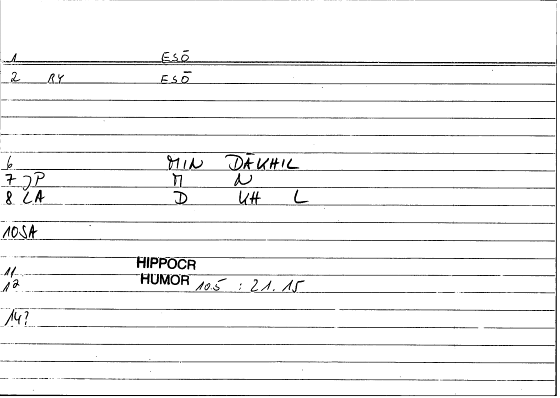 1 ESŌ
2 RY ESŌ
6 MIN DĀKHIL
7 JP M N
8 LA D KH L
10 SA
11 HIPPOCR
12 HUMOR 105 : 21.15
14?